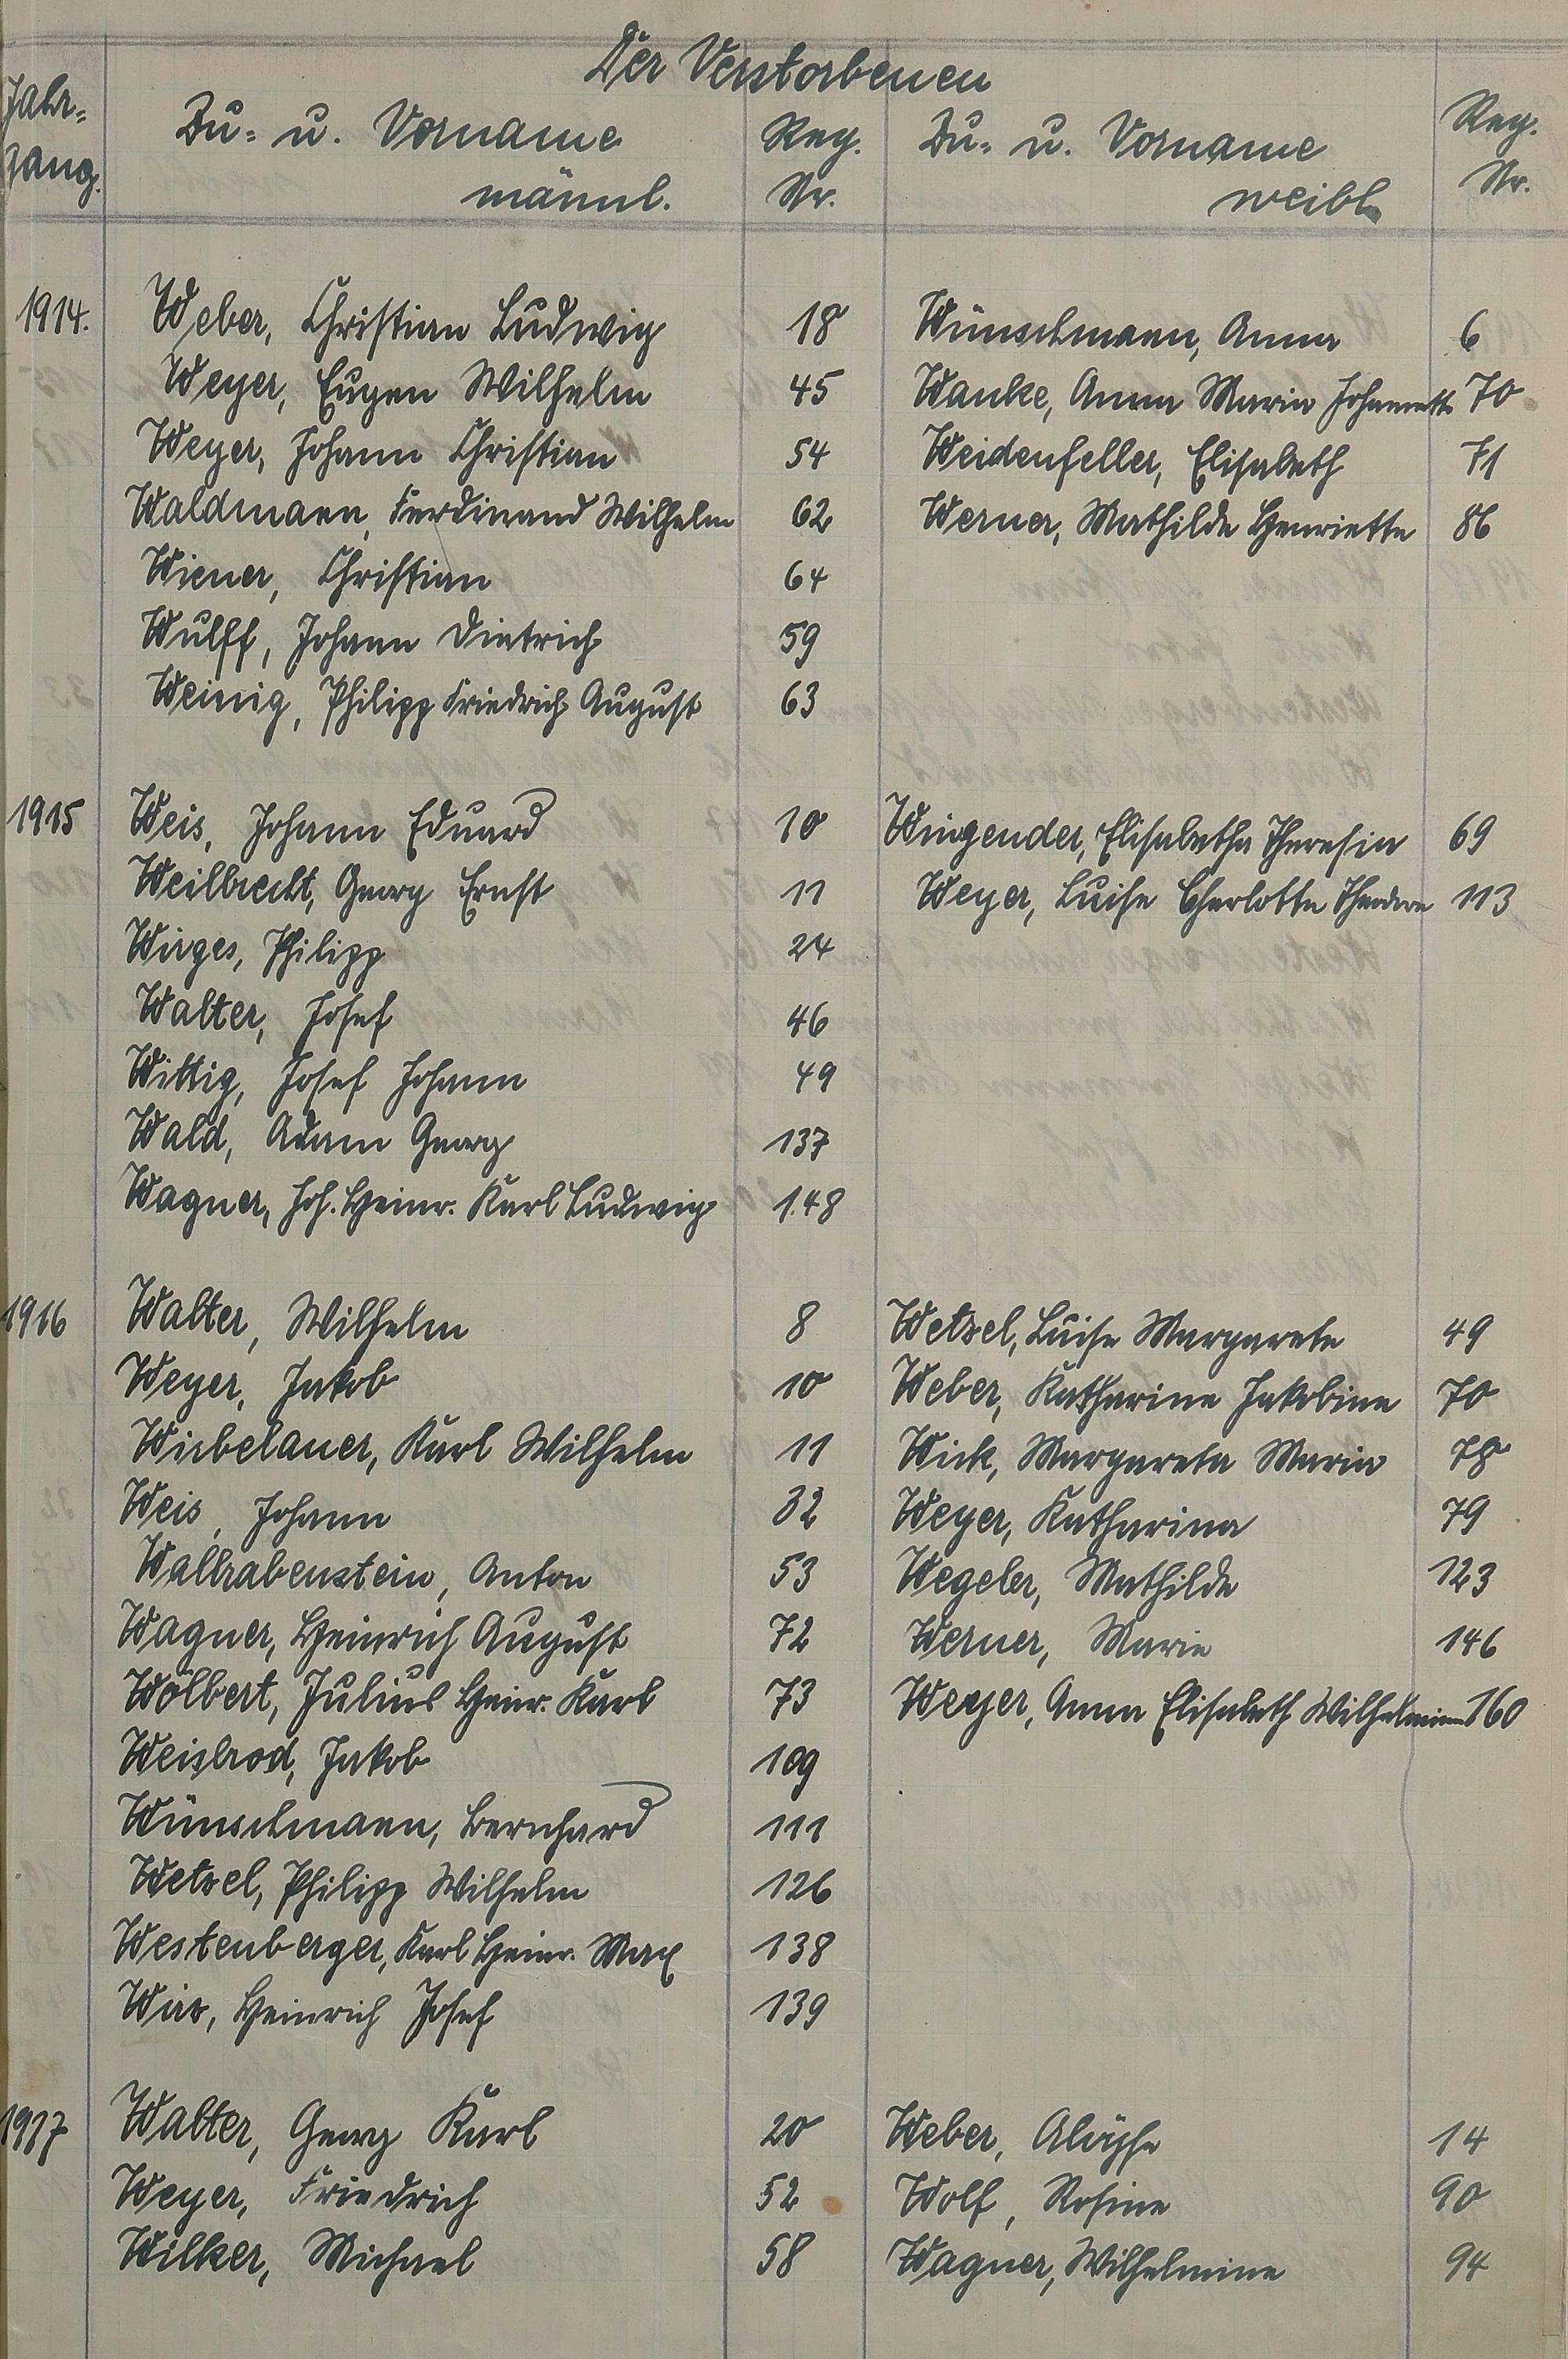 Der Verstorbenen
Jahr= Zu= u. Vorname Reg. Zu= u. Vorname Reg.
gang. männl. Nr. weibl. Nr.
1914. Weber, Christian Ludwig 18 Wünschmann, Anna 6
Weyer, Eugen Wilhelm 45 Wanke, Anna Maria Johannette 70
Weyer, Johann Christian 54 Weidenfeller, Elisabeth 71
Waldmann, Ferdinand Wilhelm 62 Werner, Mathilde Henriette 86
Wiener, Christian 64
Wulff, Johann Dietrich 59
Weinig, Philipp Friedrich August 63
1915 Weis, Johann Eduard 10 Wingender, Elisabetha Theresia 69
Weilbrecht, Georg Ernst 11 Weyer, Luise Charlotte Theodore 113
Wirges, Philipp 24
Walter, Josef 46
Wittig, Josef Johann 49
Wald, Adam Georg 137
Wagner, Joh. Heinr. Karl Ludwig 148
1916 Walter, Wilhelm 8 Wetzel, Luise Margarete 49
Weyer, Jakob 10 Weber, Katharine Jakobine 70
Wirbelauer, Karl Wilhelm 11 Wick, Margareta Maria 78
Weis, Johann 32 Weyer, Katharina 79
Wallrabenstein, Anton 53 Wegeler, Mathilde 123
Wagner, Heinrich August 72 Werner, Marie 146
Wölbert, Julius Heinr. Karl 73 Weyer, Anna Elisabeth Wilhelmine 160
Weisbrod, Jakob 109
Wünschmann, Bernhard 111
Wetzel, Philipp Wilhelm 126
Westenberger, Karl Heinr. Max 138
Wirz, Heinrich Josef 139
1917 Walter, Georg Karl 20 Weber, Aloyse 14
Weyer, Friedrich 52 Wolf, Rosine 90
Wilker, Michael 58 Wagner, Wilhelmine 94